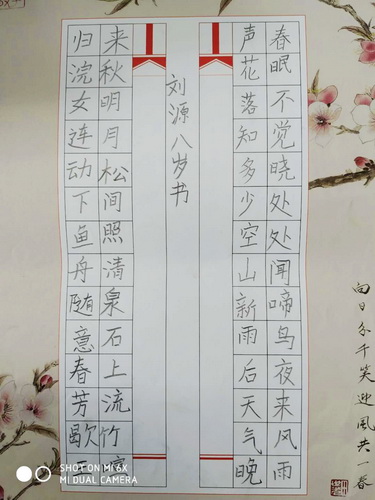 向日分千笑迎風共一春
春眠不觉晓处处闻啼鸟夜来风雨
声花落知多少空山新雨后天气晚
刘源八岁书
来秋明月松间照清泉石上流竹喧
归浣女连动下鱼舟随意春芳歇王
SHOT ON MI 6X
MI DUAL CAMERA